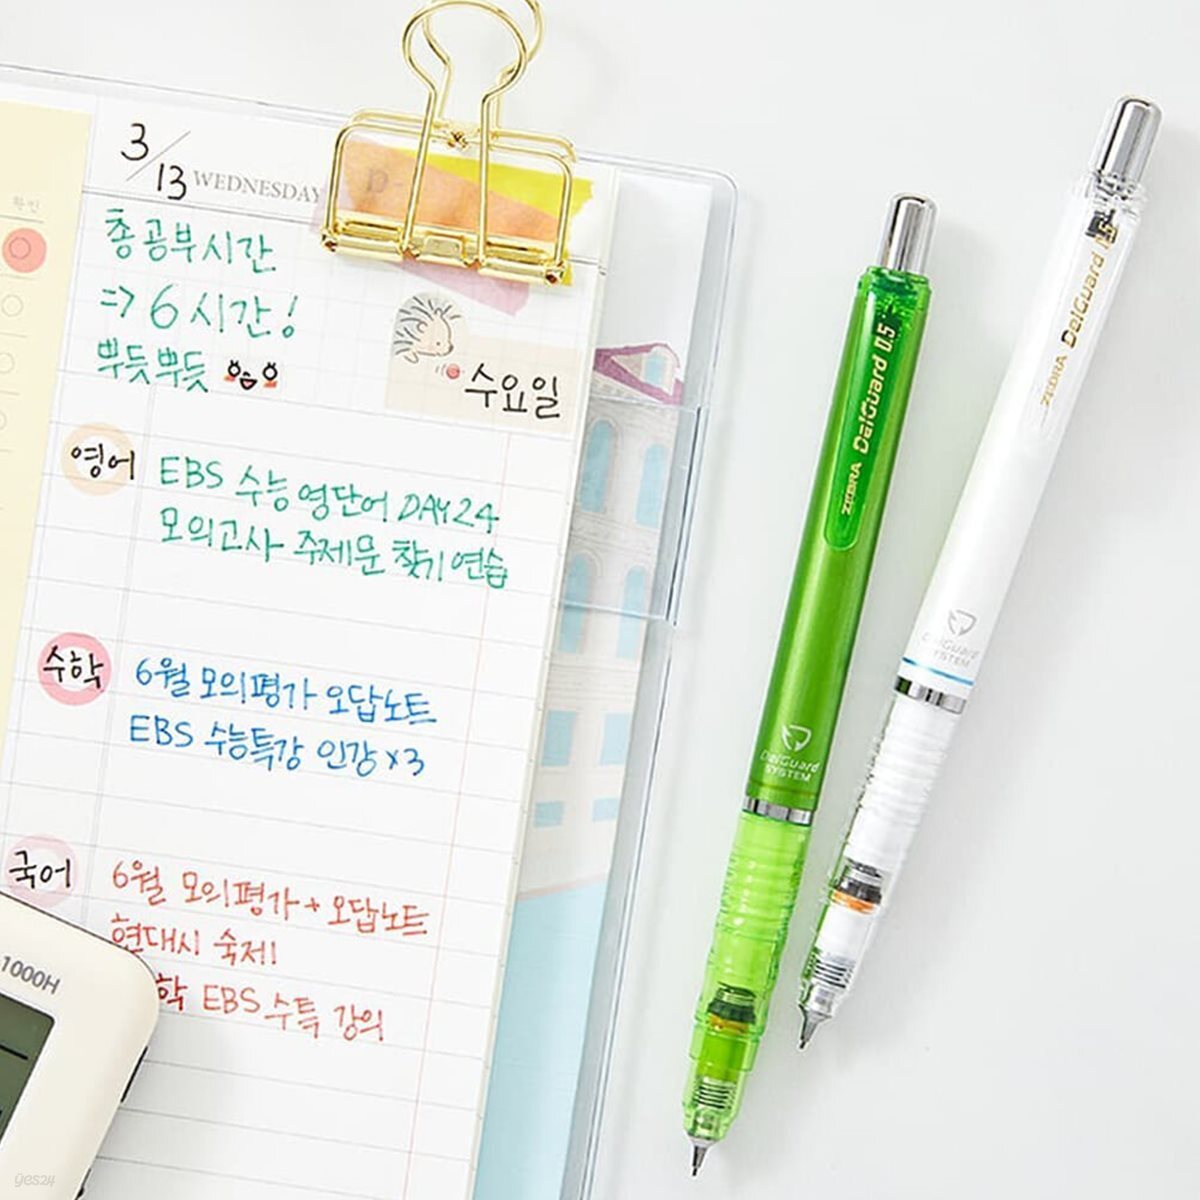 확인
3/13 WEDNESDAY D-
총 공부시간
=> 6시간!
뿌듯뿌듯
수요일
영어
EBS 수능 영단어 DAY 24
모의고사 주제문 찾기 연습
수학
6월 모의평가 오답노트
EBS 수능특강 인강 x3
국어
6월 모의평가 + 오답노트
현대시 숙제!
학 EBS 수특 강의
1000H
ZEBRA DelGuard 0.5
DelGuard
SYSTEM
ZEBRA DelGuard 0.5
DelGuard
SYSTEM
yes24